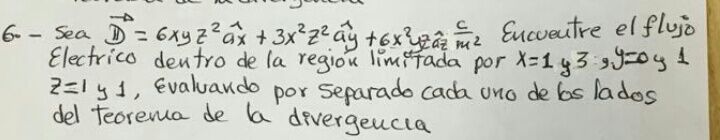 6.- Sea D⃗ = 6xyz² âx + 3x²z² ây + 6x²yz âz c/m² Encuentre el flujo
Electrico dentro de la región limitada por x=1 y 3; y=0 y 1
z=1 y 1, Evaluando por separado cada uno de los lados
del teorema de la divergencia